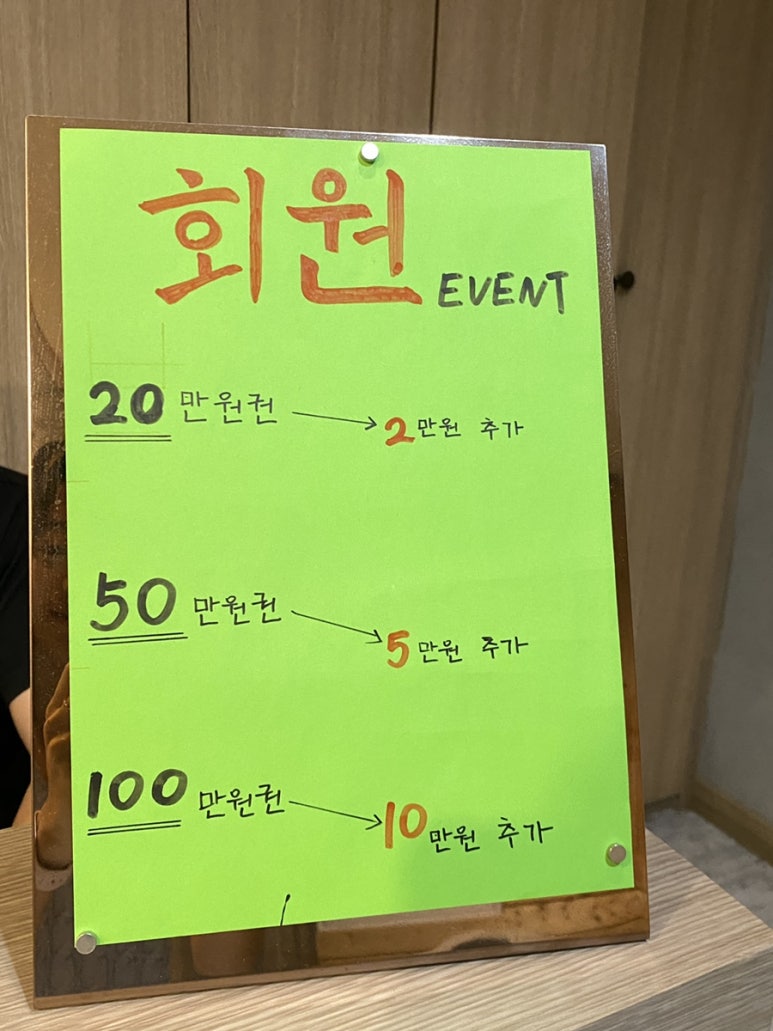 회원 EVENT
20만원권 → 2만원 추가
50만원권 → 5만원 추가
100만원권 → 10만원 추가